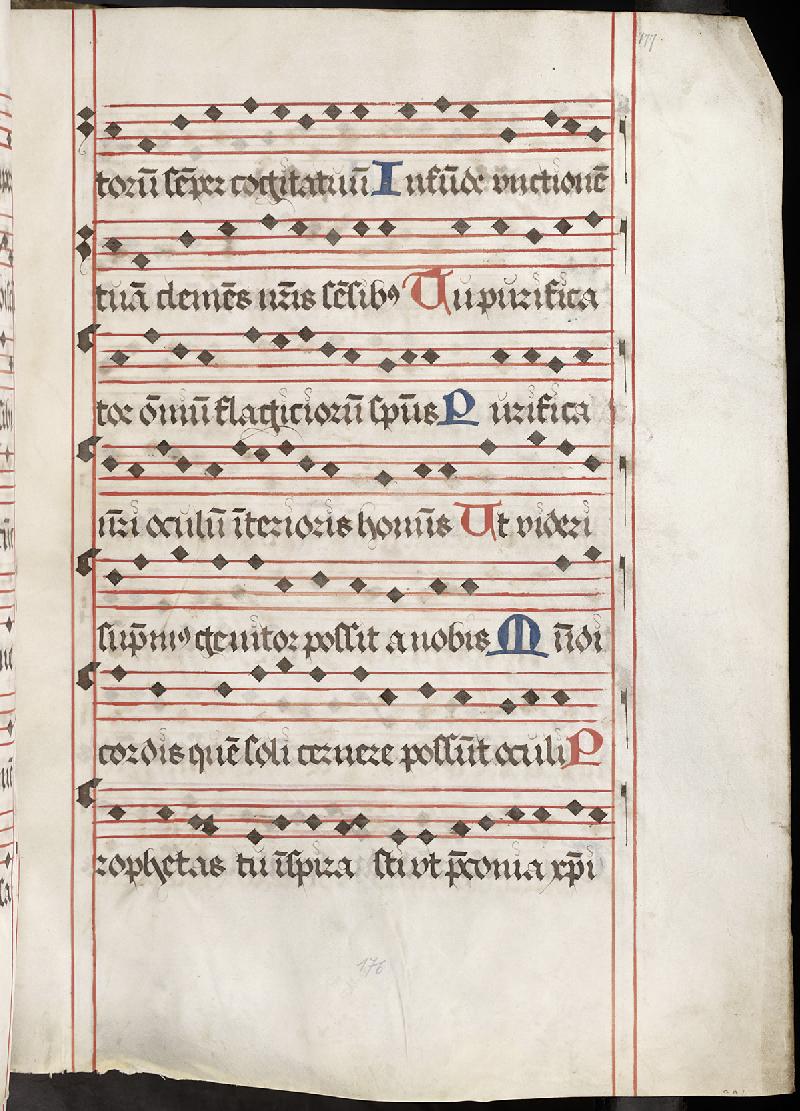 177
torū sēper cogitatuū Infūde vnctionē
tuā clemēs nr̄is sēsibꝰ Tu purifica
tor ōniū flagiciorū sp̄us Purifica
nr̄i oculū īterioris homīs Ut videri
sup̄mꝰ genitor possit a nobis Mūdi
cordis quē soli cernere possūt oculi P
rophetas tu īspira sti vt p̄conia xp̄i
176